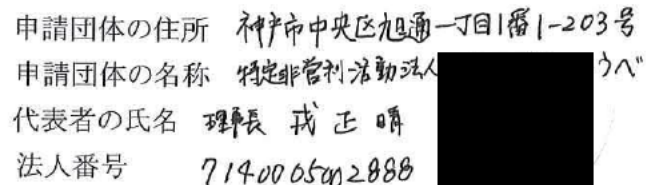 申請団体の住所 神戸市中央区旭通一丁目1番1-203号
申請団体の名称 特定非営利活動法人 うべ
代表者の氏名 理事長 戎 正晴
法人番号 7140005002888